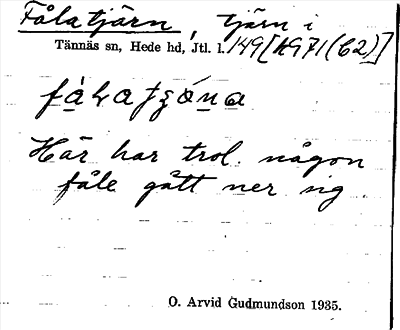 Fålatjärn, tjärn i
Tännäs sn, Hede hd, Jtl. l. 149[A971(62)]
Här har trol. någon
fåle gått ner sig.
O. Arvid Gudmundson 1935.